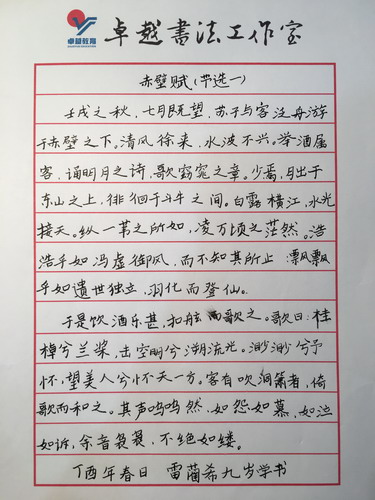 卓越教育
卓越书法工作室
赤壁赋(节选一)
壬戌之秋,七月既望,苏子与客泛舟游
于赤壁之下。清风徐来,水波不兴。举酒属
客,诵明月之诗,歌窈窕之章。少焉,月出于
东山之上,徘徊于斗牛之间。白露横江,水光
接天。纵一苇之所如,凌万顷之茫然。浩
浩乎如冯虚御风,而不知其所止 飘飘
乎如遗世独立,羽化而登仙。
于是饮酒乐甚,扣舷而歌之。歌曰:桂
棹兮兰桨,击空明兮溯流光。渺渺兮予
怀,望美人兮怀天一方。客有吹洞箫者,倚
歌而和之。其声呜呜然,如怨如慕,如泣
如诉,余音袅袅,不绝如缕。
丁酉年春日 雷蔺希九岁学书